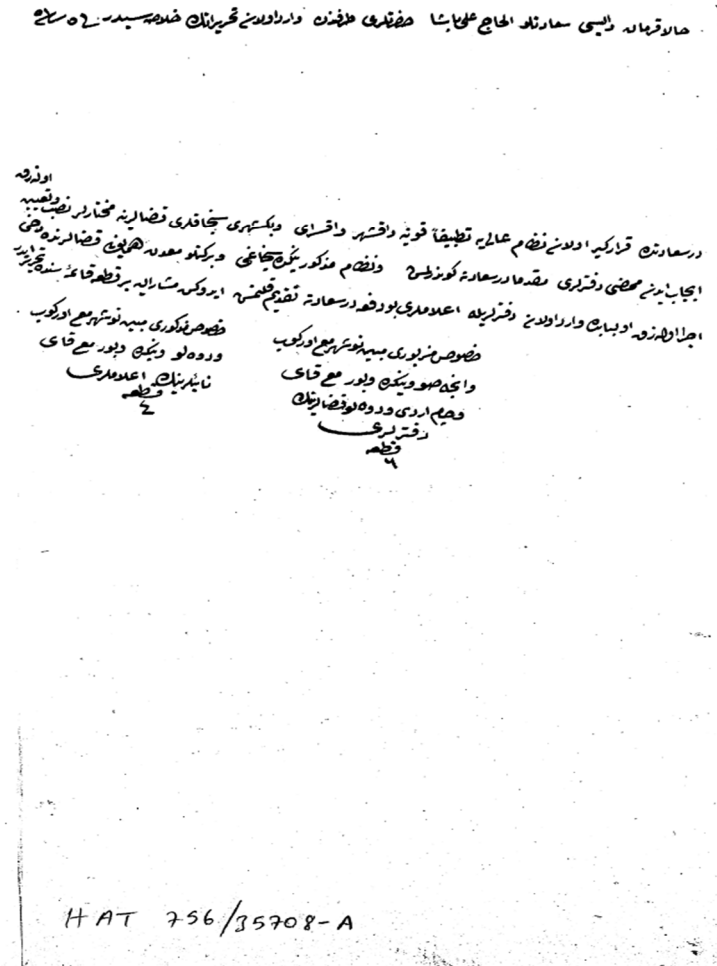 حالا قرمان واليسى سعادتلو الحاج على پاشا حضرتلرى طرفندن وارد اولان تحريراتك خلاصه سيدر
اولنه رق
درسعادتده قراركير اولان نظام عاليه تطبيقا قونيه واقشهر واقسراى وبكشهرى سنجاقلرى قضالرينه مختارلر نصب وتعيين
ايجاب ايدن دفترلرى مقدما درسعادته كوندرلمش ونظام مذكور نيكده سنجاغى وبركتلو معدن همايون قضالرنده دخى
اجرا اولنه رق اوبابده وارد اولان دفترلريله اعلاملرى بو دفعه درسعادته تقديم قلنمش ايدوكن مشاراليه بر قطعه قائمه سنده تحرير ايدر
خصوص مزبورى مبين نوشهر مع اوركوب
وانجه صو ونيكده وبور مع
ودوه لو قضالرينك
دفترلرى
قطعه
٦
خصوص مذكورى مبين نوشهر مع اوركوب
ودوه لو ونيكده وبور مع
نائبلرينك اعلاملرى
قطعه
٤
HAT 756/35708-A